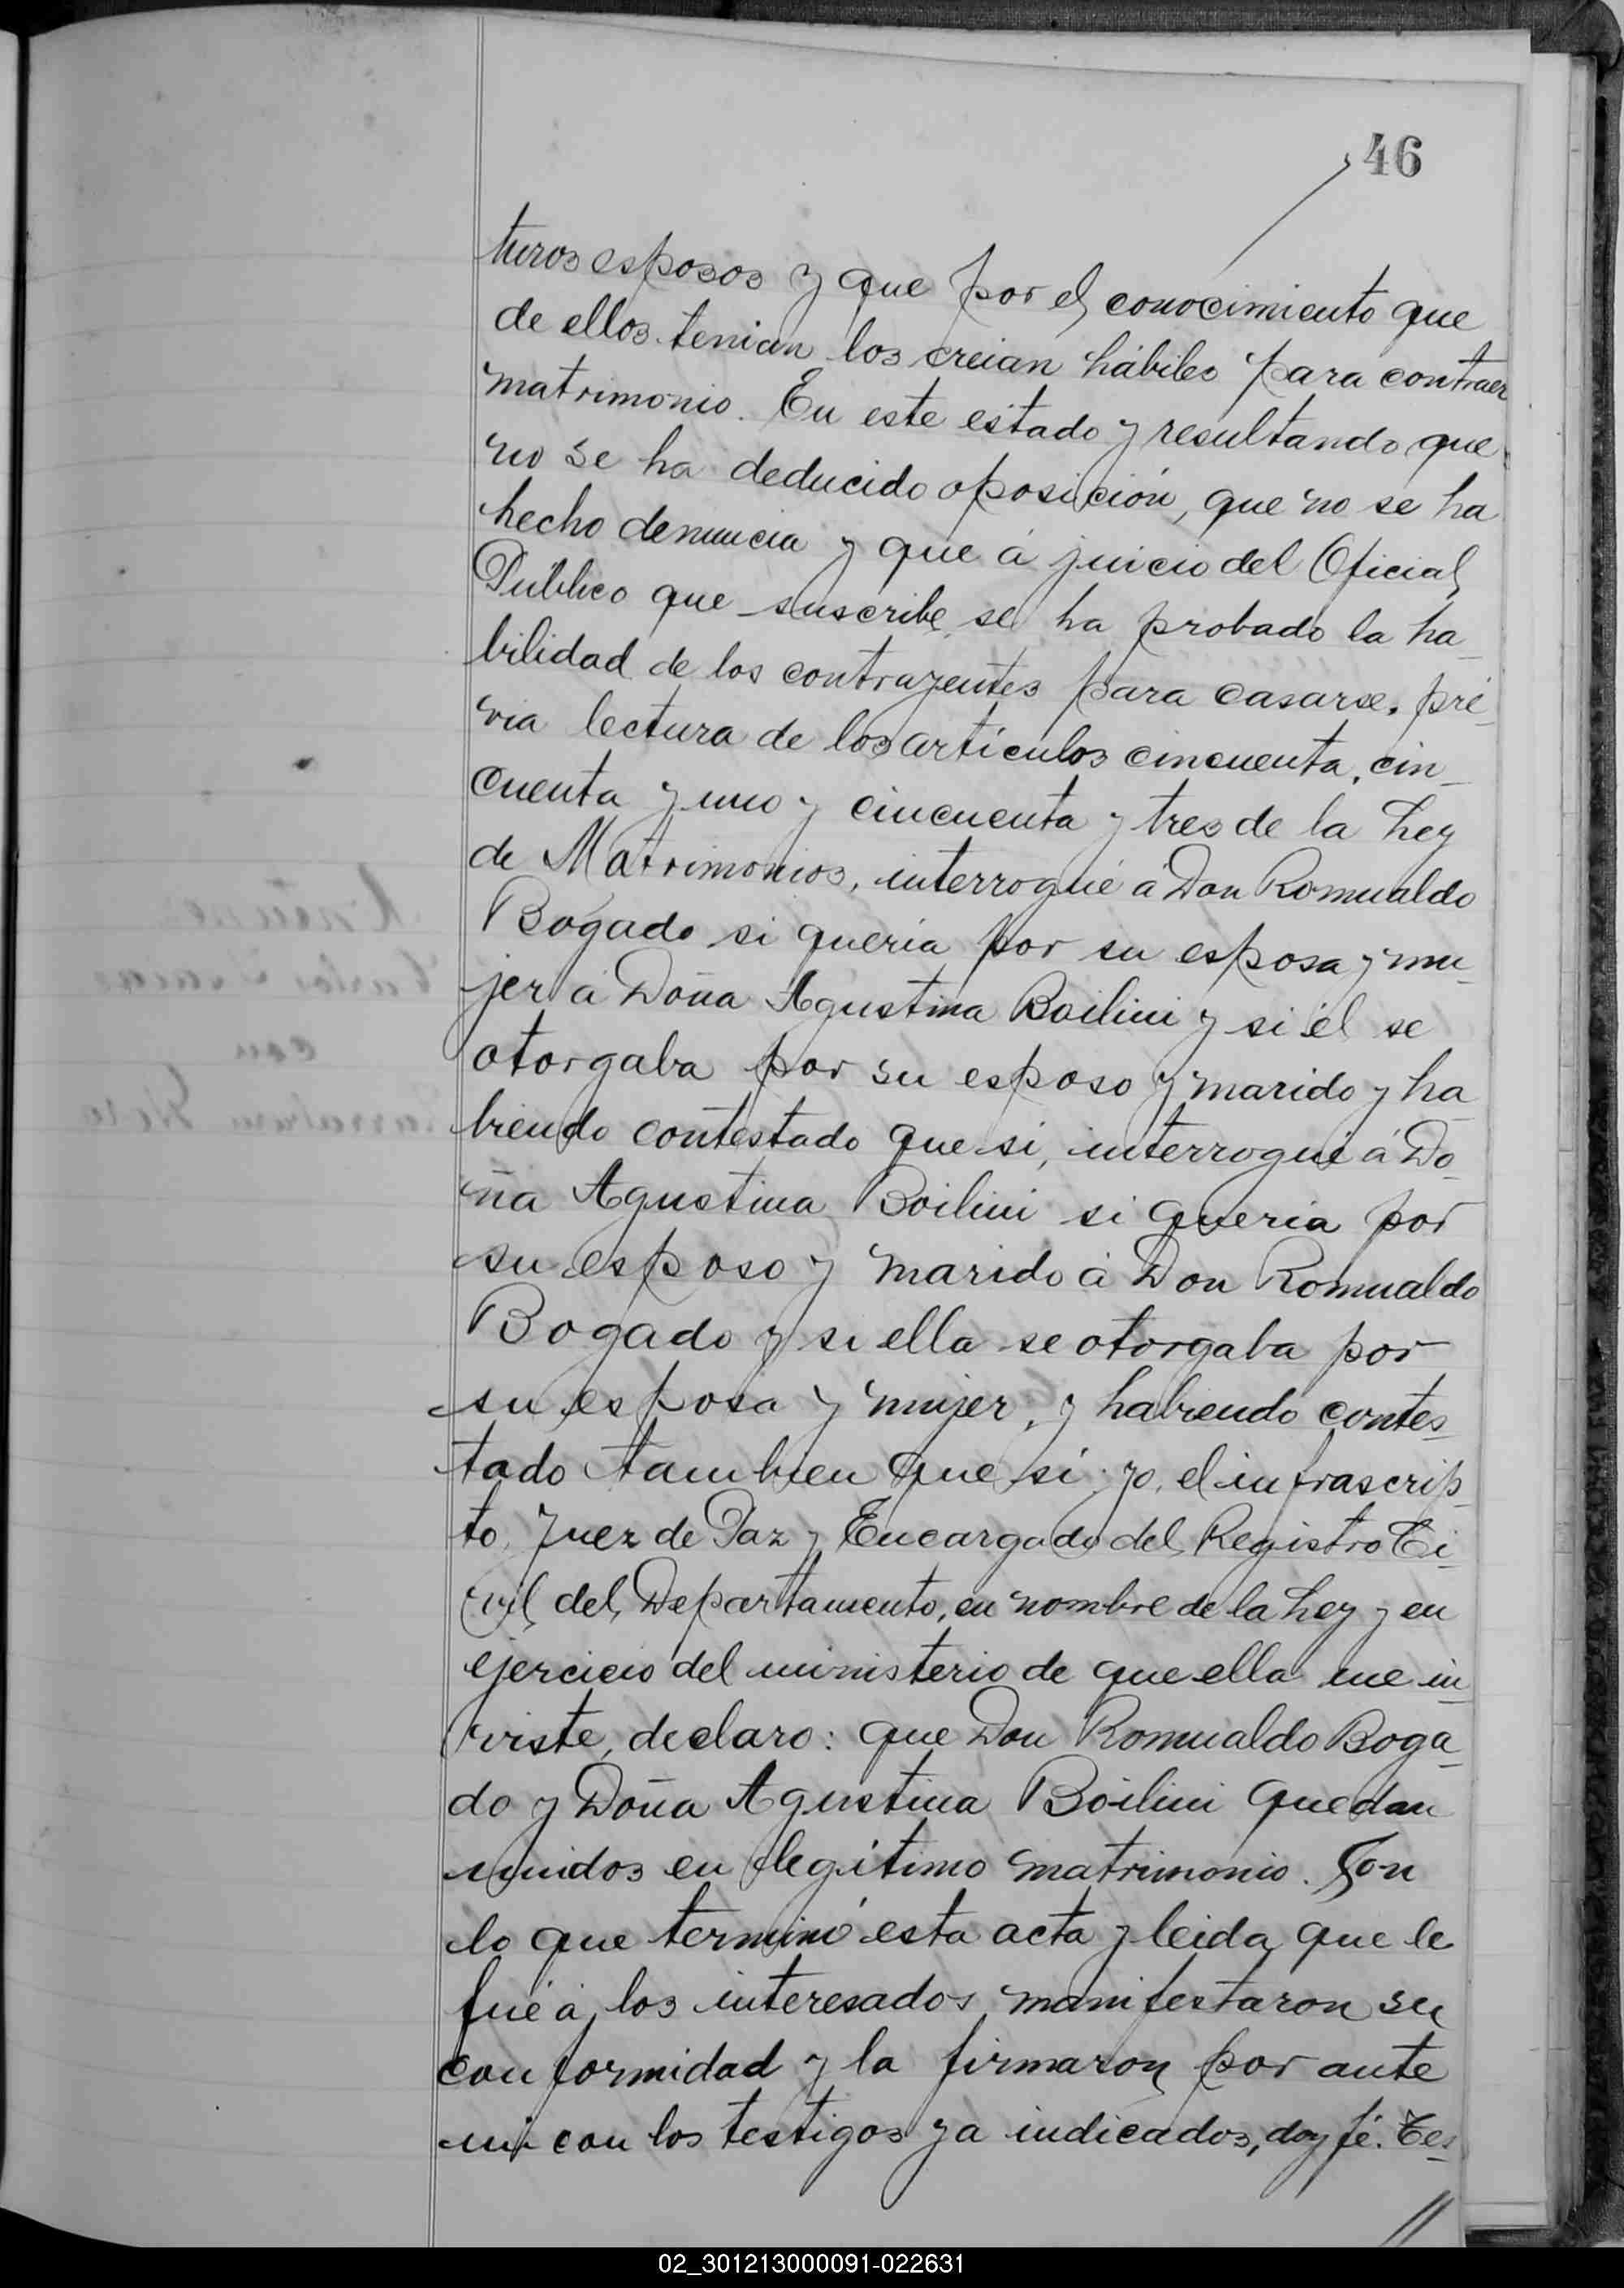 46
turos esposos y que por el conocimiento que
de ellos tenian los creian hábiles para contraer
matrimonio. En este estado y resultando que
no se ha deducido oposición, que no se ha
hecho denuncia y que á juicio del Oficial
Público que suscribe se ha probado la ha_
bilidad de los contrayentes para casarse, pré_
via lectura de los artículos cincuenta, cin_
cuenta y uno y cincuenta y tres de la Ley
de Matrimonios, interrogué a Don Romualdo
Bogado si quería por su esposa y mu_
jer á Doña Agustina Boilini y si él se
otorgaba por su esposo y marido y ha_
biendo contestado que si, interrogué á Do_
ña Agustina Boilini si queria por
su esposo y marido á Don Romualdo
Bogado y si ella se otorgaba por
su esposa y mujer, y habiendo contes_
tado tambien que sí; yo, el infrascrip_
to, Juez de Paz y Encargado del Registro Ci_
vil del Departamento, en nombre de la Ley y en
ejercicio del ministerio de que ella me in_
viste, declaro: que Don Romualdo Boga_
do y Doña Agustina Boilini quedan
unidos en legítimo matrimonio. Con
lo que terminó esta acta y leida que le
fué á los interesados manifestaron su
conformidad y la firmaron por ante
mi con los testigos ya indicados, doy fé. Tes_
02_301213000091-022631